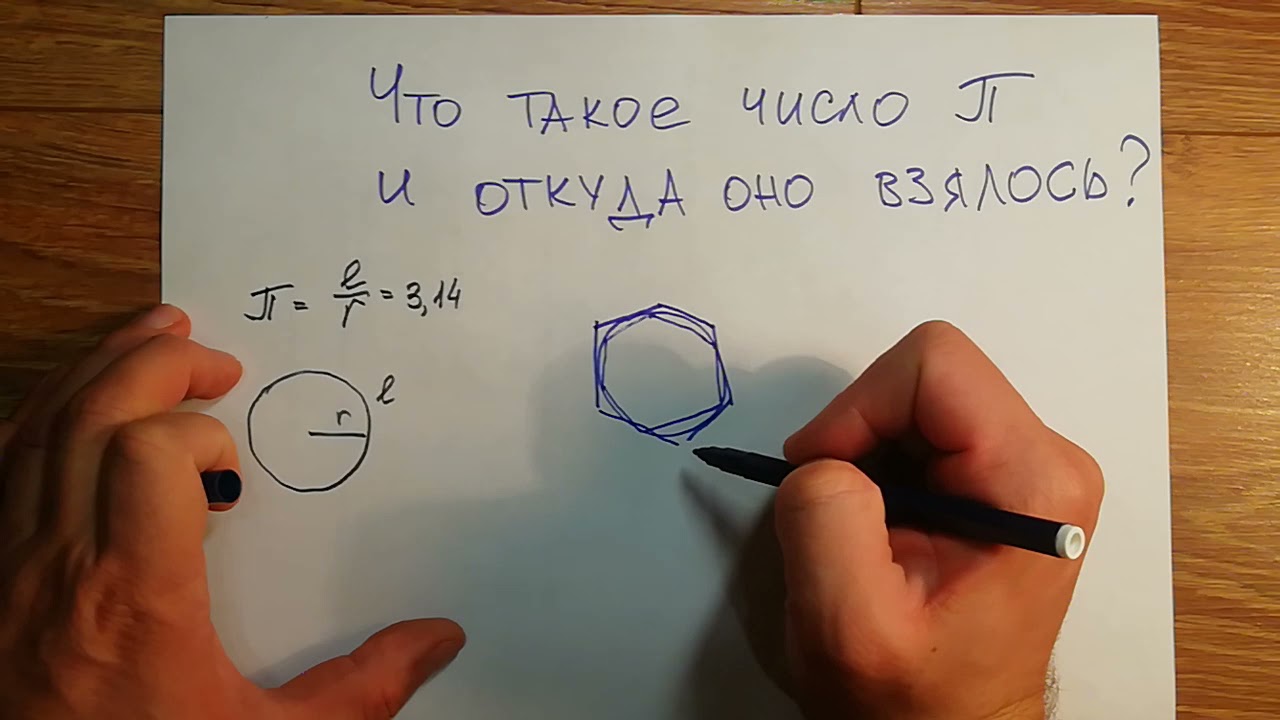 Что такое число П
и откуда оно взялось?
П = l/r = 3,14
l
r